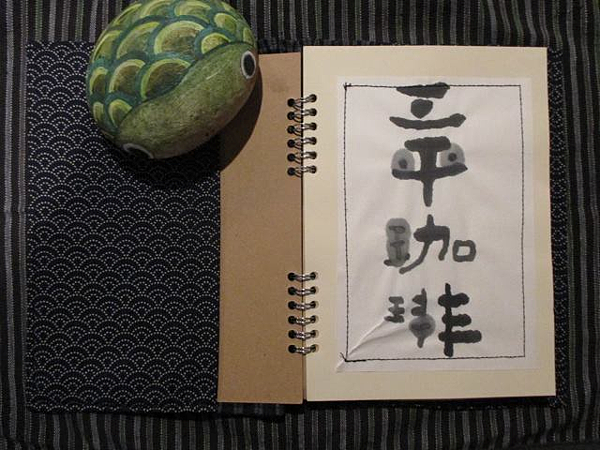 三平珈琲